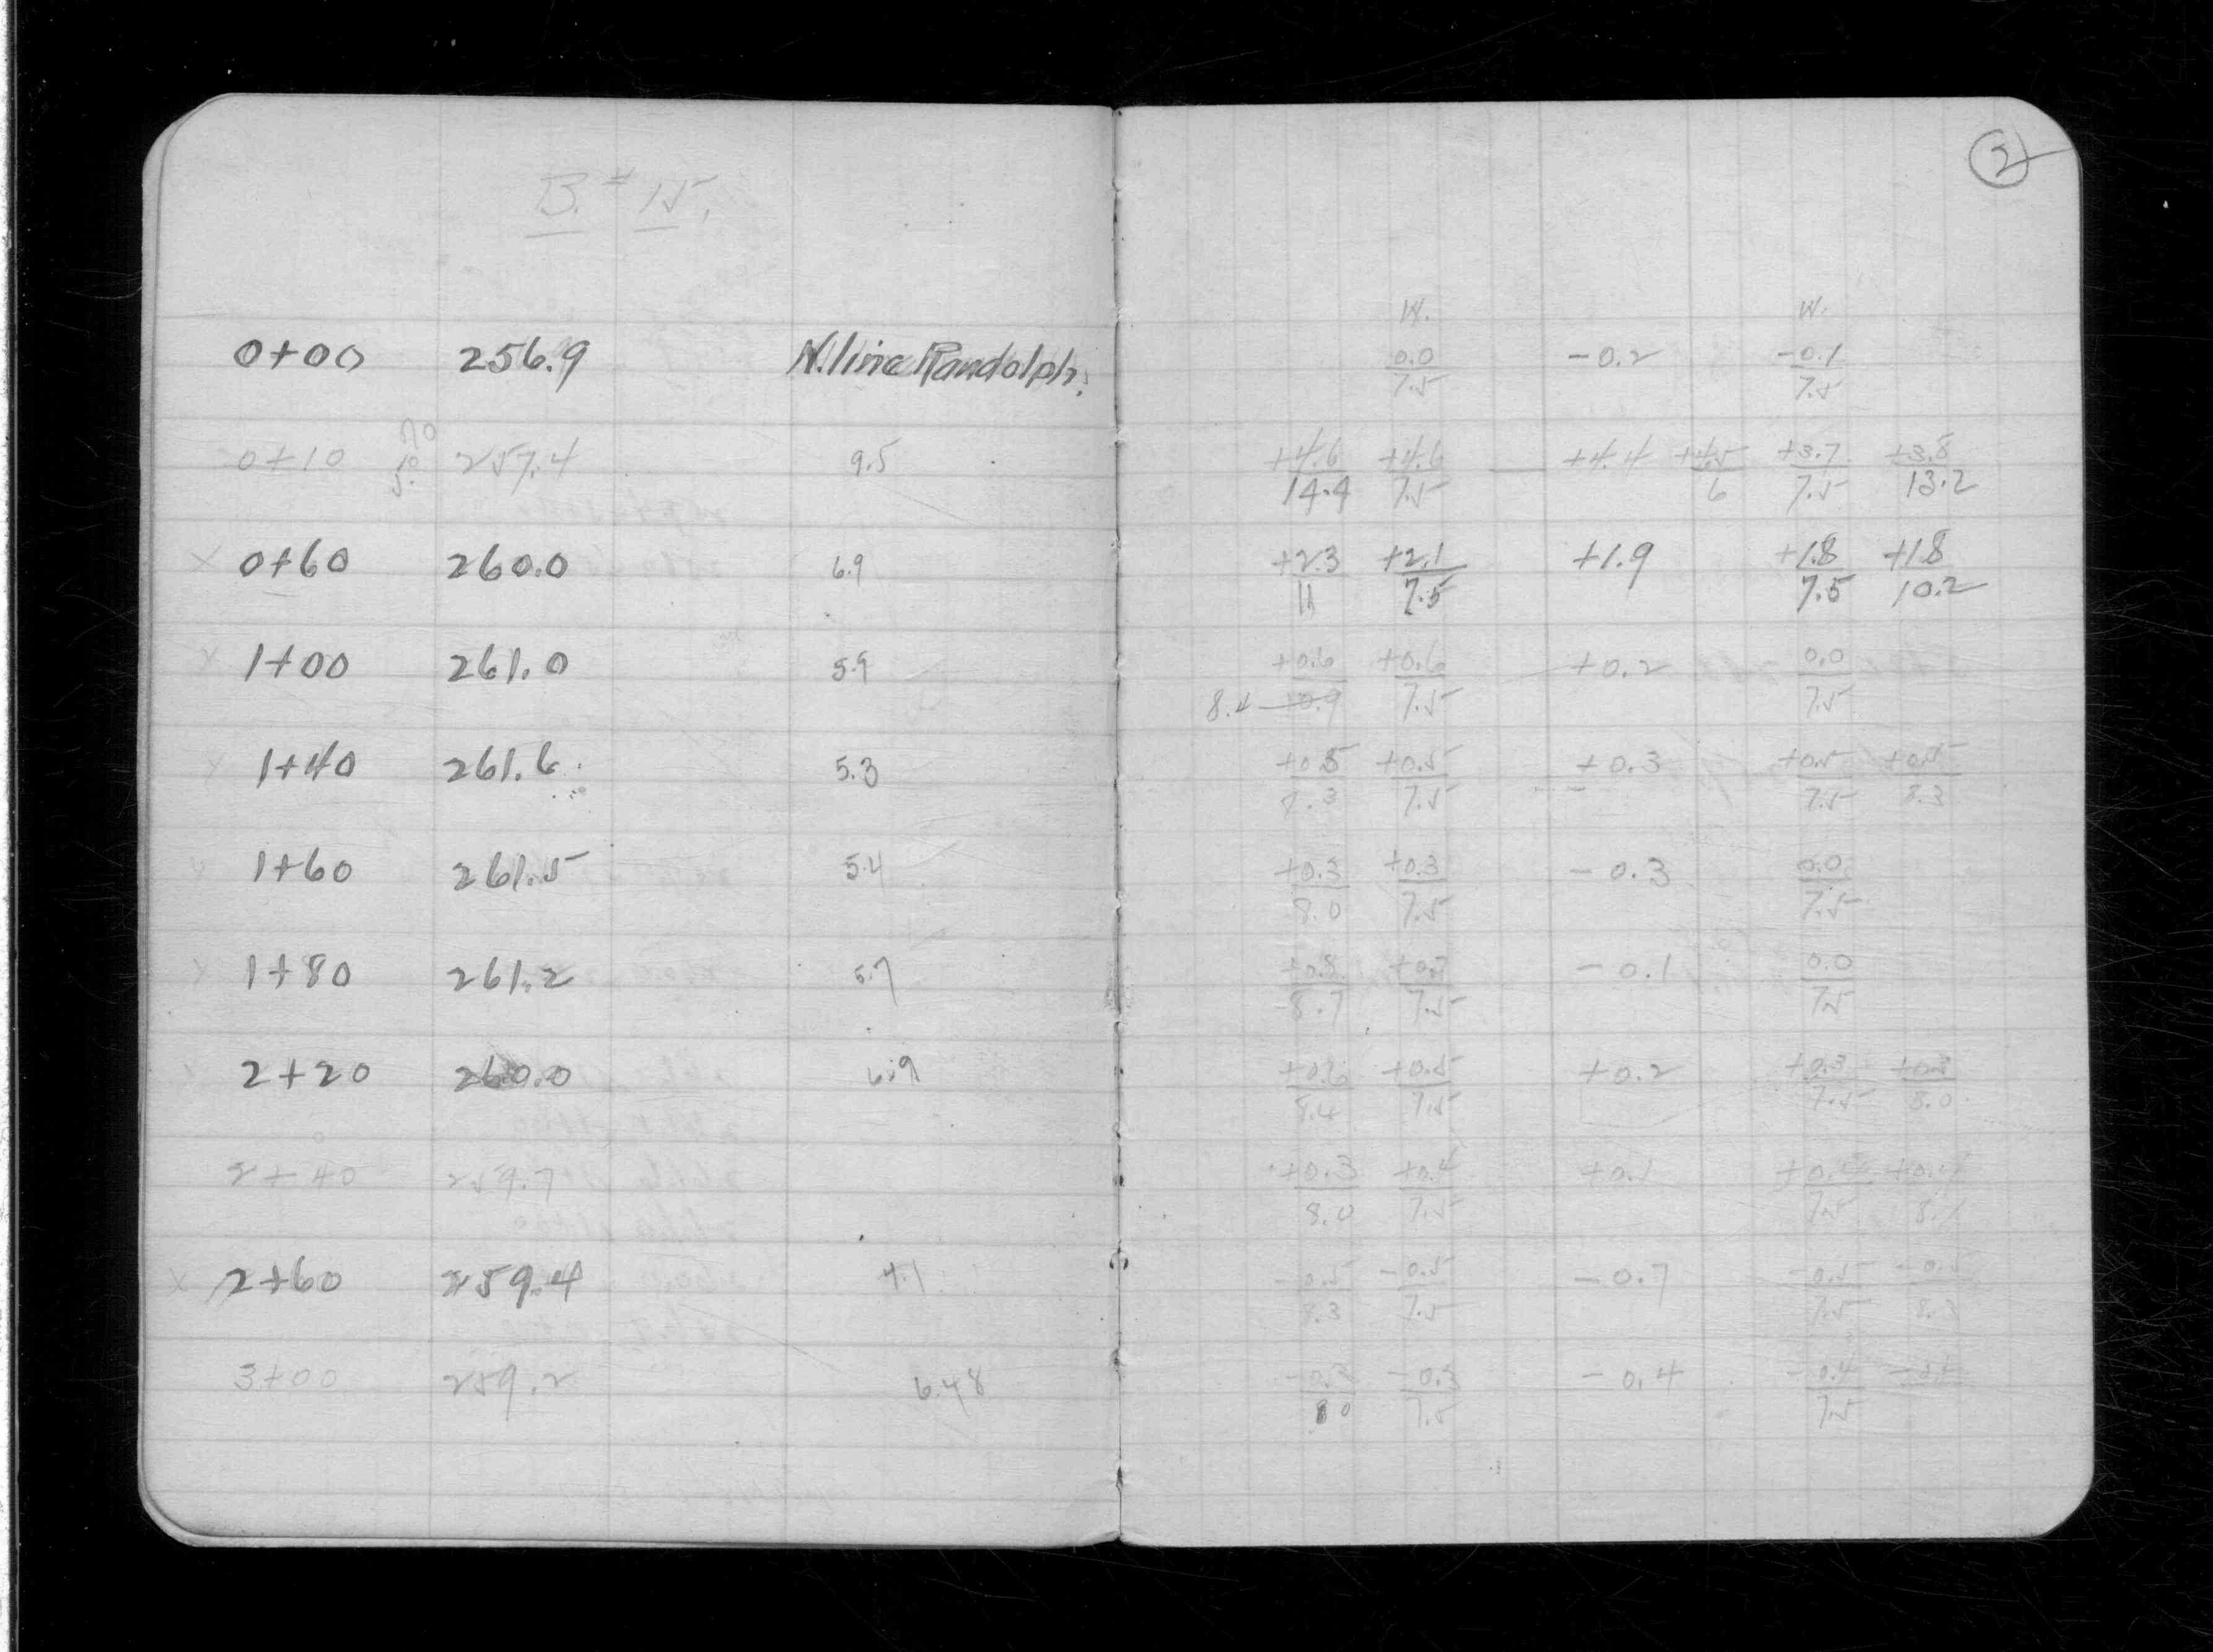 2
B. = 15.
W. W.
0+00 256.9 N. line Randolph. 0.0/7.5 -0.2 -0.1/7.5
0+10 257.4 9.5 +4.6/14.4 +4.6/7.5 +4.4 +4.5/6 +3.7/7.5 +3.8/13.2
x 0+60 260.0 6.9 +2.3/11 +2.1/7.5 +1.9 +1.8/7.5 +1.8/10.2
x 1+00 261.0 5.9 +0.6/8.4 +0.6/7.5 +0.2 0.0/7.5
x 1+40 261.6 5.3 +0.5/8.3 +0.5/7.5 +0.3 +0.5/7.5 +0.5/8.3
x 1+60 261.5 5.4 +0.3/8.0 +0.3/7.5 -0.3 0.0/7.5
x 1+80 261.2 5.7 +0.8/8.7 +0.7/7.5 -0.1 0.0/7.5
2+20 260.0 6.9 +0.6/8.4 +0.5/7.5 +0.2 +0.3/7.5 +0.3/8.0
2+40 259.7 +0.3/8.0 +0.4/7.5 +0.1 +0.4/7.5
x 2+60 259.4 7.1 -0.5/8.3 -0.5/7.5 -0.7 -0.5/7.5 -0.5/8.3
3+00 259.2 6.48 -0.3/7.5 -0.4 -0.4/7.5